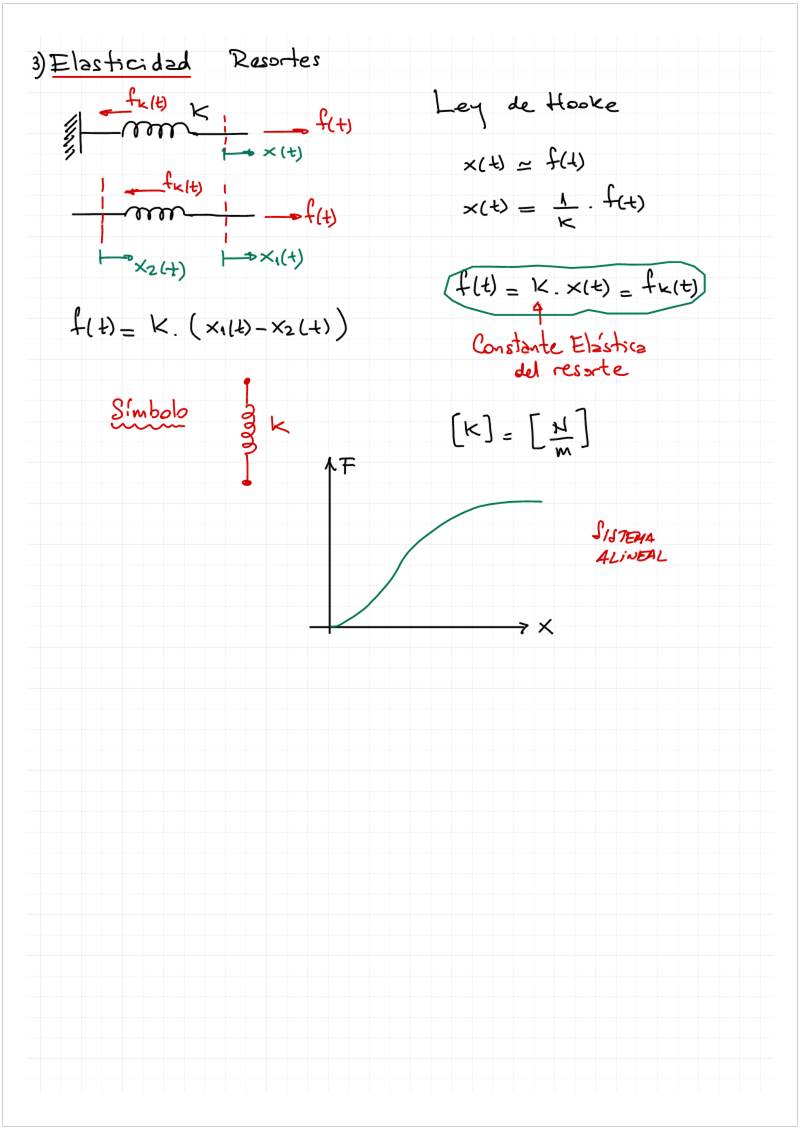 3) Elasticidad Resortes
fk(t) K f(t)
x(t)
fk(t) f(t)
x2(t) x1(t)
f(t) = K . (x1(t) - x2(t))
Símbolo K
Ley de Hooke
x(t) ≃ f(t)
x(t) = 1/K . f(t)
f(t) = K . x(t) = fk(t)
Constante Elástica
del resorte
[K] = [N/m]
F
X
SISTEMA
ALINEAL